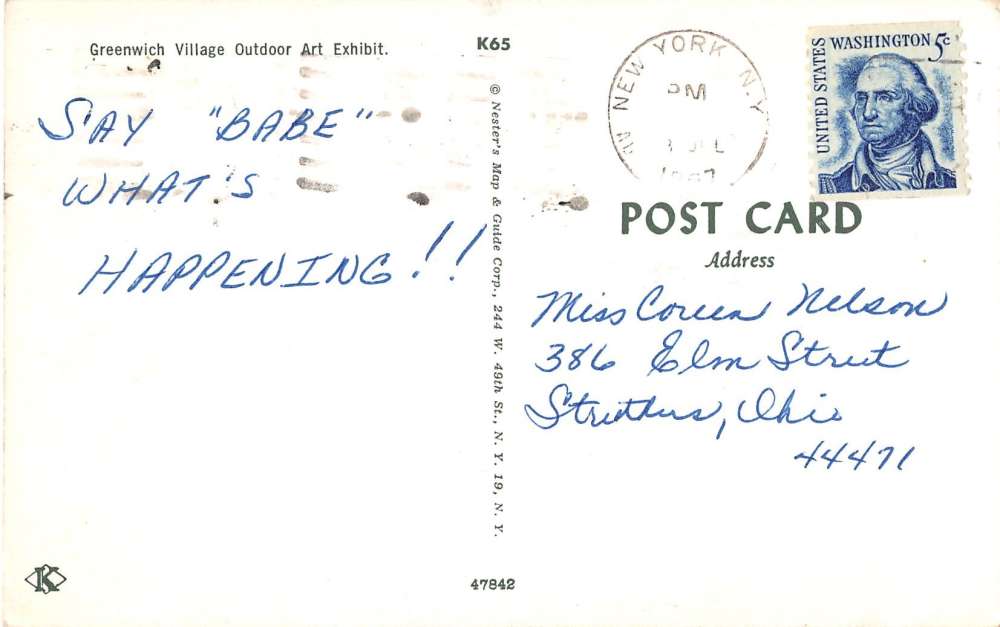 Greenwich Village Outdoor Art Exhibit.
SAY "BABE"
WHAT'S
HAPPENING!!
K65
© Nester's Map & Guide Corp., 244 W. 49th St., N. Y. 19, N. Y.
47842
K
NEW YORK N.Y
PM
JUL
UNITED STATES
WASHINGTON 5c
POST CARD
Address
Miss Coreen Nelson
386 Elm Street
Struthers, Ohio
44471